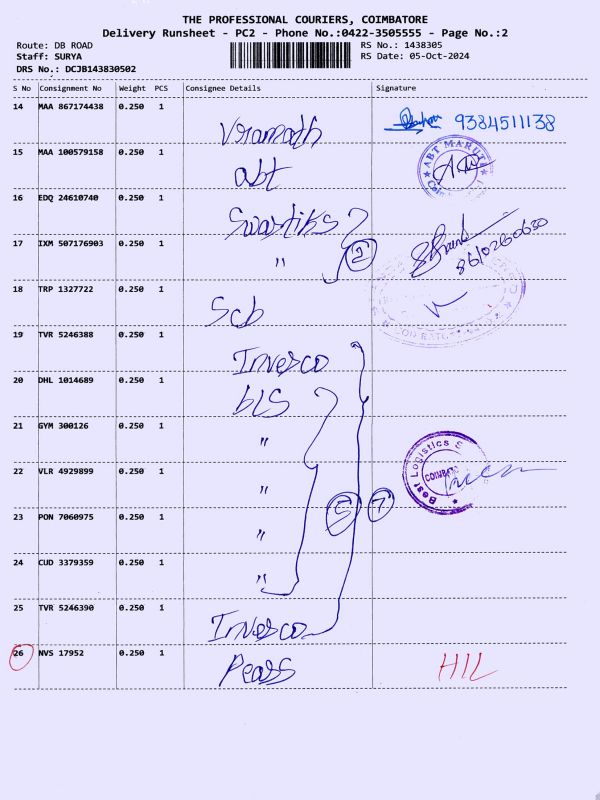 THE PROFESSIONAL COURIERS, COIMBATORE
Delivery Runsheet - PC2 - Phone No.:0422-3505555 - Page No.:2
Route: DB ROAD RS No.: 1438305
Staff: SURYA RS Date: 05-Oct-2024
DRS No.: DCJB143830502
S No Consignment No Weight PCS Consignee Details Signature
14 MAA 867174438 0.250 1
Vramath 9384511138
15 MAA 100579158 0.250 1 ABT MARUTI
abt
16 EDQ 24610740 0.250 1
Swastiks
17 IXM 507176903 0.250 1
" 2 8610260630
18 TRP 1327722 0.250 1
Scb
19 TVR 5246388 0.250 1
Invesco
20 DHL 1014689 0.250 1
bLS
21 GYM 300126 0.250 1
"
22 VLR 4929899 0.250 1 Best Logistics S
" COIMBATO
23 PON 7060975 0.250 1 5 7
"
24 CUD 3379359 0.250 1
"
25 TVR 5246390 0.250 1
Invesco
26 NVS 17952 0.250 1
Pears HIL